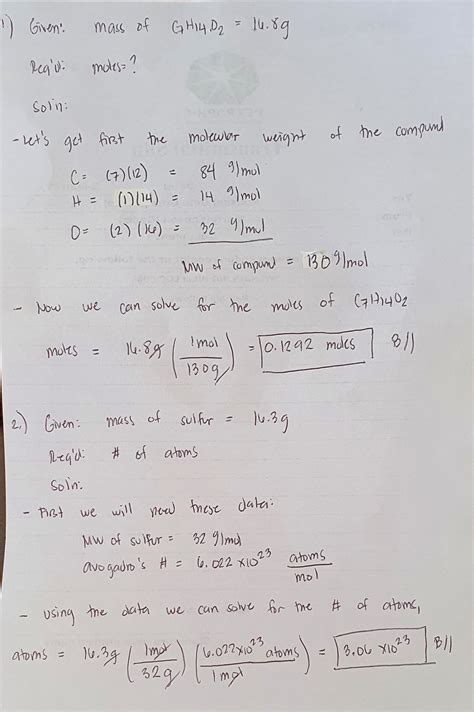 1) Given: mass of C7H14O2 = 16.8g
Req'd: moles=?
Sol'n:
- Let's get first the molecular weight of the compound
C= (7)(12) = 84 g/mol
H = (1)(14) = 14 g/mol
O= (2)(16) = 32 g/mol
MW of compound = 130 g/mol
- Now we can solve for the moles of C7H14O2
moles = 16.8g (1mol/130g) = 0.1292 moles B//
2.) Given: mass of sulfur = 16.3g
Req'd: # of atoms
Sol'n:
- First we will need these data:
MW of sulfur = 32 g/mol
avogadro's # = 6.022 x10^23 atoms/mol
- using the data we can solve for the # of atoms,
atoms = 16.3g (1mol/32g) (6.022x10^23 atoms/1mol) = 3.06 x10^23 B//